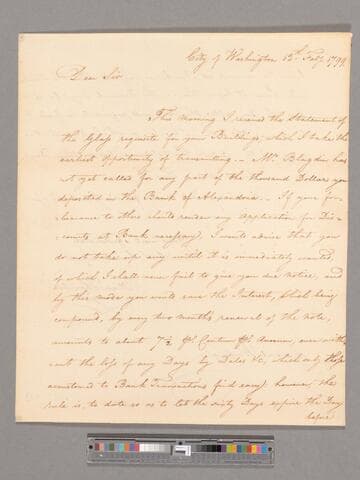 City of Washington 12th Feby. 1799
Dear Sir
This morning I received the Statement of
the Glass requisite for your Buildings, which I take the
earliest opportunity of transmitting. – Mr. Blagdin has
not yet called for any part of the thousand Dollars you
deposited in the Bank of Alexandria. – If your
to others should render any application for Dis-
counts at Bank necessary, I would advise that you
do not take up any until it is immediately wanted,
of which I shall never fail to give you due notice, and
by this mode you would save the Interest, which being
compound, by any two months renewal of the note,
amounts to about 7½ per Centum per Annum, even with-
out the loss of any Days by Dates &c. which only those
accustomed to Bank Transactions find easy; however, the
rule is, to date so as to let the sixty Days expire the Day
before